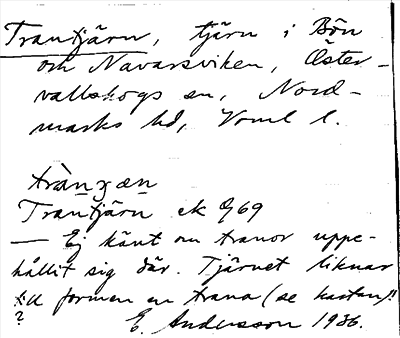 Trantjärn, tjärn i Bön
och Navarsviken, Öster-
vallskogs sn, Nord-
marks hd, Vrml l.
Trantjärn ek 69
— Ej känt om tranor uppe-
hållit sig där. Tjärnet liknar
till formen en trana (se kartan)!!
?
E. Andersson 1936.